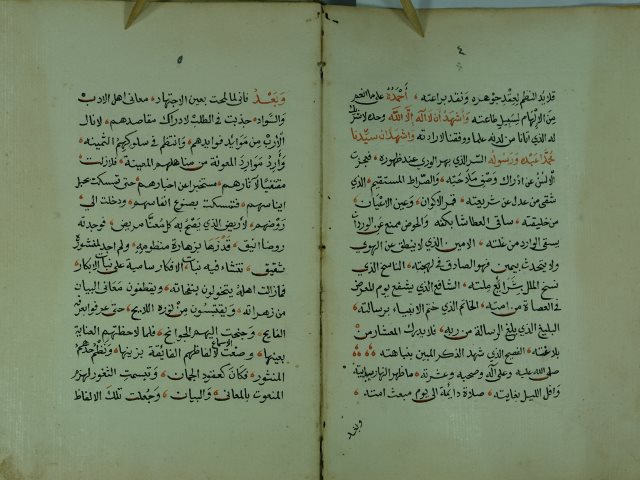 ٤
قلايد النظم لعقد جوهره ونقد براعته ، أحمده على ما الهم
من الالهام لسبيل طاعته واشهد ان لا اله الا الله وحده لا شريك
له الذي انانا من لدنه علما ووفقنا لارادته واشهد ان سيدنا
محمدا عبده ورسوله السر الذي بهر الورى عند ظهوره ، فعجزت
الالسن عن ادراك وصف ملاحته ، والصراط المستقيم ، الذي
شقي من عدل عن شريعته ، قمر الاكوان ، وعين الاعيان ،
من خليقته ، ساقي العطاشا بكفه ، والحوض ممنع عن الواردات
يسقى الوارد من غلته ، الامين الذي لا ينطق عن الهوى
ولا يتحدث بيمين فهو الصادق في لهجته ، الناسخ الذي
نسخ الملل بشرايع ملته ، الشافع الذي يشفع يوم العرض
في العصاة من امته ، الخاتم الذي ختم الانبياء برسالته ،
البليغ الذي بلغ الرسالة من ربه ، فلا يدرك المعشار من
بلاغته ، الفصيح الذي شهد الذكر المبين بنباهته
صلى الله عليه وعلى آله وصحبه وعترته ، ما ظهر النهار
وافل الليل لغايته ، صلاة دايمة الى يوم مبعث امته ،
وبعد
٥
وبعد فاني لما لمحت بعين الاجتهاد ، معاني اهل الادب
والسواد ، جذبت في الطلب لادراك مقاصدهم ، لانال
الارب من موايد فوايدهم ، وانتظم في سلوكهم الثمينه ،
وأرد موارد المعولة من مناهلهم المعينة ، فلازلت
مقتفيا لآثارهم ، مستخبرا عن اخبارهم حتى تمسكت بحبل
ايناسهم ، فتمسكت بضوع انفاسهم ، ودخلت الى
روضهم ، لاريض الذي يصح به كل معنا مريض ، فوجدته
روضا انيق ، قد زها بزهارة منظومه ، ولم اجد لمنثوره
شقيق ، تنشاء فيه نبات الافكار سامية على نبات الابكار
فما زالت اهله يتحولون بتيجانه ، ويقطفون معاني البيان
من زهراته ، ويقتبسون من نوره اللايح ، حتى عم فوايعه
الفايح ، وجنحت اليهم الجوانح ، فلما لاحظتهم العناية
بعينها ، وصنعت الفاظهم الفايقة بزينها ، ونظم هم
المنثور ، فكان كعقود الجمان ، وتبسمت الثغور لهم
المنعوت بالمعاني ، والبيان ، وجعلت تلك الالفاظ